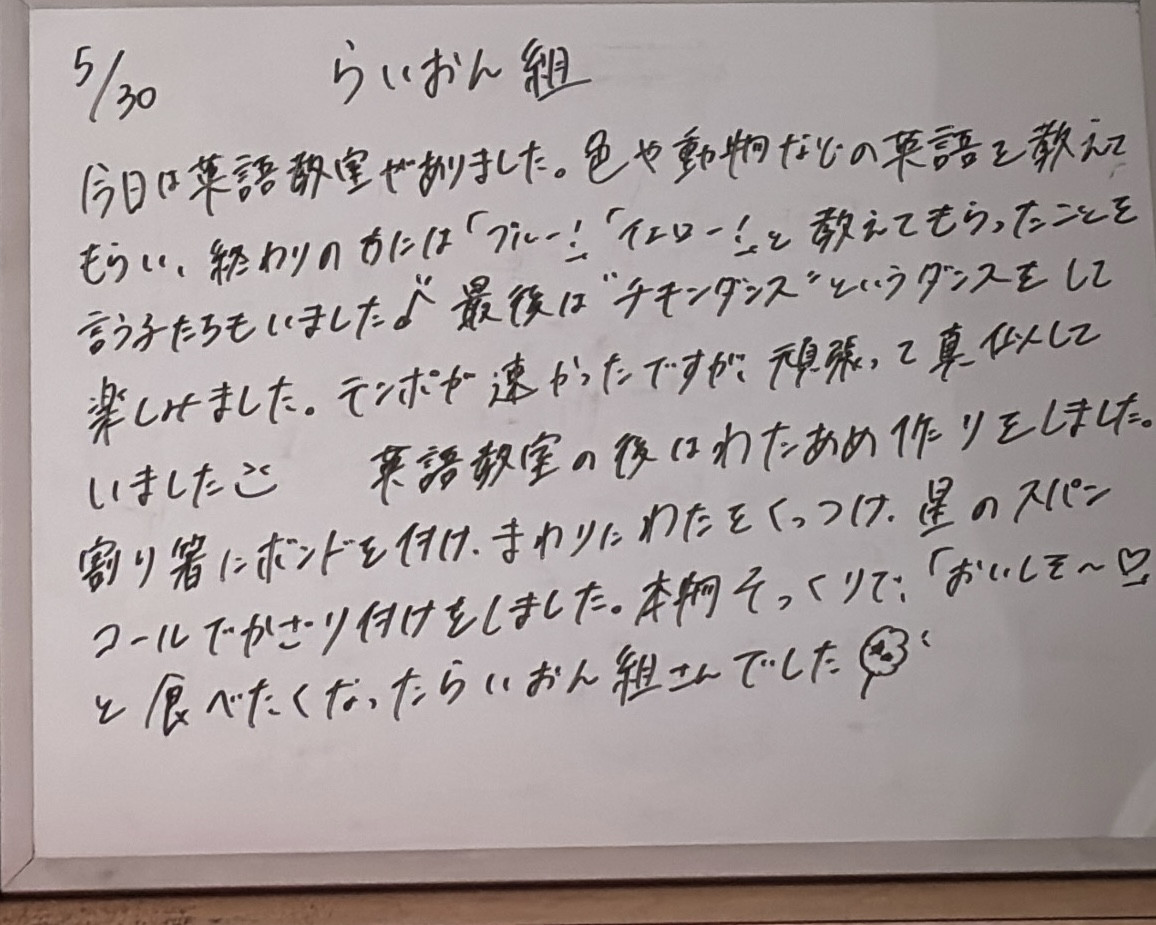 5/30 らいおん組
今日は英語教室がありました。色や動物などの英語を教えて
もらい、終わりの方には「ブルー!」「イエロー!」と教えてもらったことを
言う子たちもいました♪ 最後は"チモンダンス"というダンスをして
楽しみました。テンポが速かったですが、頑張って真似して
いました 英語教室の後はわたあめ作りをしました。
割り箸にボンドを付け、まわりにわたをくっつけ、星のスパン
コールでかざり付けをしました。本物そっくりで、「おいしそ〜♡」
と食べたくなったらいおん組さんでした